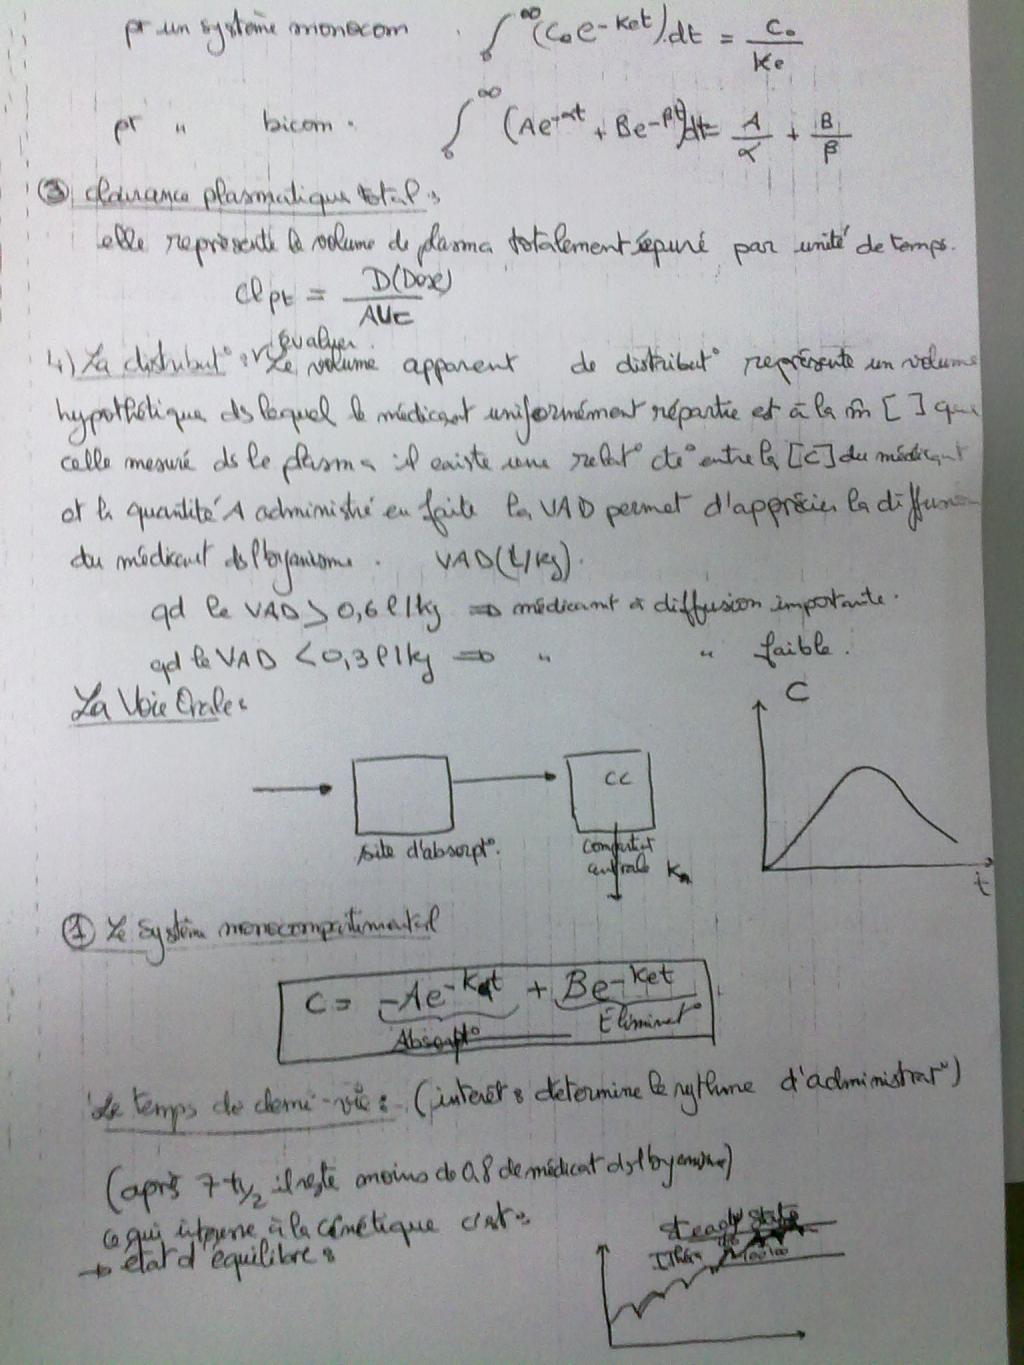 pr un système monocom. ∫₀^∞ (C₀e^-Ket).dt = C₀/Ke
pr " bicom. ∫₀^∞ (Ae^-αt + Be^-βt)dt = A/α + B/β
③ clairance plasmatique total :
elle représente le volume de plasma totalement épuré par unité de temps.
Cl pt = D(Dose)/AUC
évaluer.
4) La distribut° : Le volume apparent de distribut° représente un volume
hypothétique ds lequel le médicant uniformément répartie est à la m̂ [ ] que
celle mesuré ds le plasma il existe une relat° cte entre la [C] du médicant
et la quantité A administré en faite la VAD permet d'apprécier la diffusion
du médicant ds l'organisme. VAD(L/kg).
qd le VAD > 0,6 l/kg => médicant à diffusion importante.
qd le VAD < 0,3 l/kg => " " faible.
La Voie Orale :
C
CC
site d'absorpt°.
compartimt
centrale
t
① Le système monocompartimental
C = -Ae^-Kat + Be^-Ket
Absorpt° Eliminat°
Le temps de demi-vie : (intérêt : détermine le rythme d'administrat°)
(après 7 t1/2 il reste moins de 0,8 de médicat ds l'organisme)
ce qui à la cinétique c'est :
→ état d'équilibre :
steady state